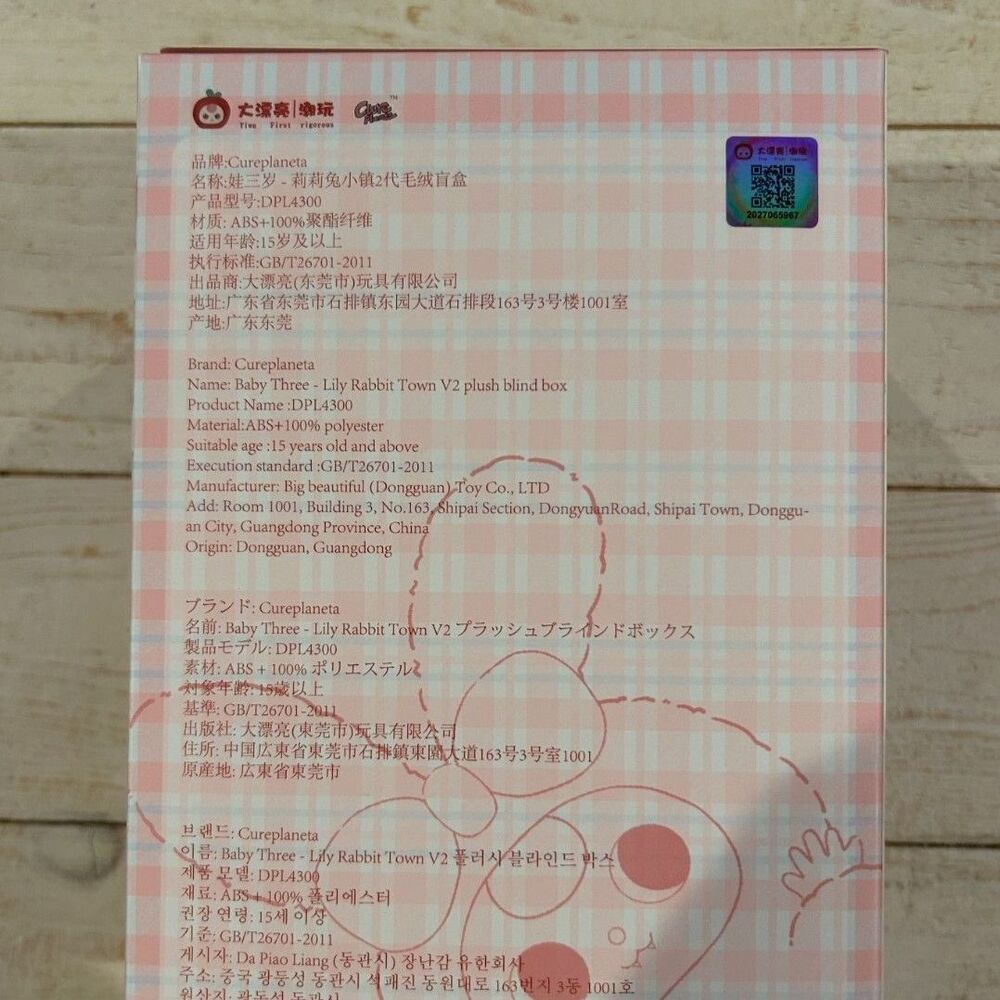 大漂亮|潮玩
Yiwu First rigorous
TM
大漂亮|潮玩
2027065967
品牌:Cureplaneta
名称:娃三岁 - 莉莉兔小镇2代毛绒盲盒
产品型号:DPL4300
材质: ABS+100%聚酯纤维
适用年龄:15岁及以上
执行标准:GB/T26701-2011
出品商:大漂亮(东莞市)玩具有限公司
地址:广东省东莞市石排镇东园大道石排段163号3号楼1001室
产地:广东东莞
Brand: Cureplaneta
Name: Baby Three - Lily Rabbit Town V2 plush blind box
Product Name :DPL4300
Material:ABS+100% polyester
Suitable age :15 years old and above
Execution standard :GB/T26701-2011
Manufacturer: Big beautiful (Dongguan) Toy Co., LTD
Add: Room 1001, Building 3, No.163, Shipai Section, DongyuanRoad, Shipai Town, Donggu-
an City, Guangdong Province, China
Origin: Dongguan, Guangdong
ブランド: Cureplaneta
名前: Baby Three - Lily Rabbit Town V2 プラッシュブラインドボックス
製品モデル: DPL4300
素材: ABS + 100% ポリエステル
対象年齢: 15歳以上
基準: GB/T26701-2011
出版社: 大漂亮(東莞市)玩具有限公司
住所: 中国広東省東莞市石排鎮東園大道163号3号室1001
原産地: 広東省東莞市
브랜드: Cureplaneta
이름: Baby Three - Lily Rabbit Town V2 플러시 블라인드 박스
제품 모델: DPL4300
재료: ABS + 100% 폴리에스터
권장 연령: 15세 이상
기준: GB/T26701-2011
게시자: Da Piao Liang (동관시) 장난감 유한회사
주소: 중국 광둥성 동관시 석패진 동원대로 163번지 3동 1001호
원산지: 광동성 동관시